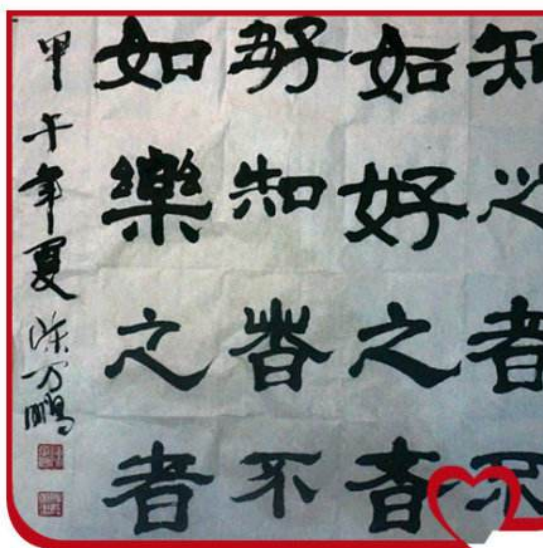 知之者不
如好之者
好知者不
如樂之者
甲午年夏万鹏